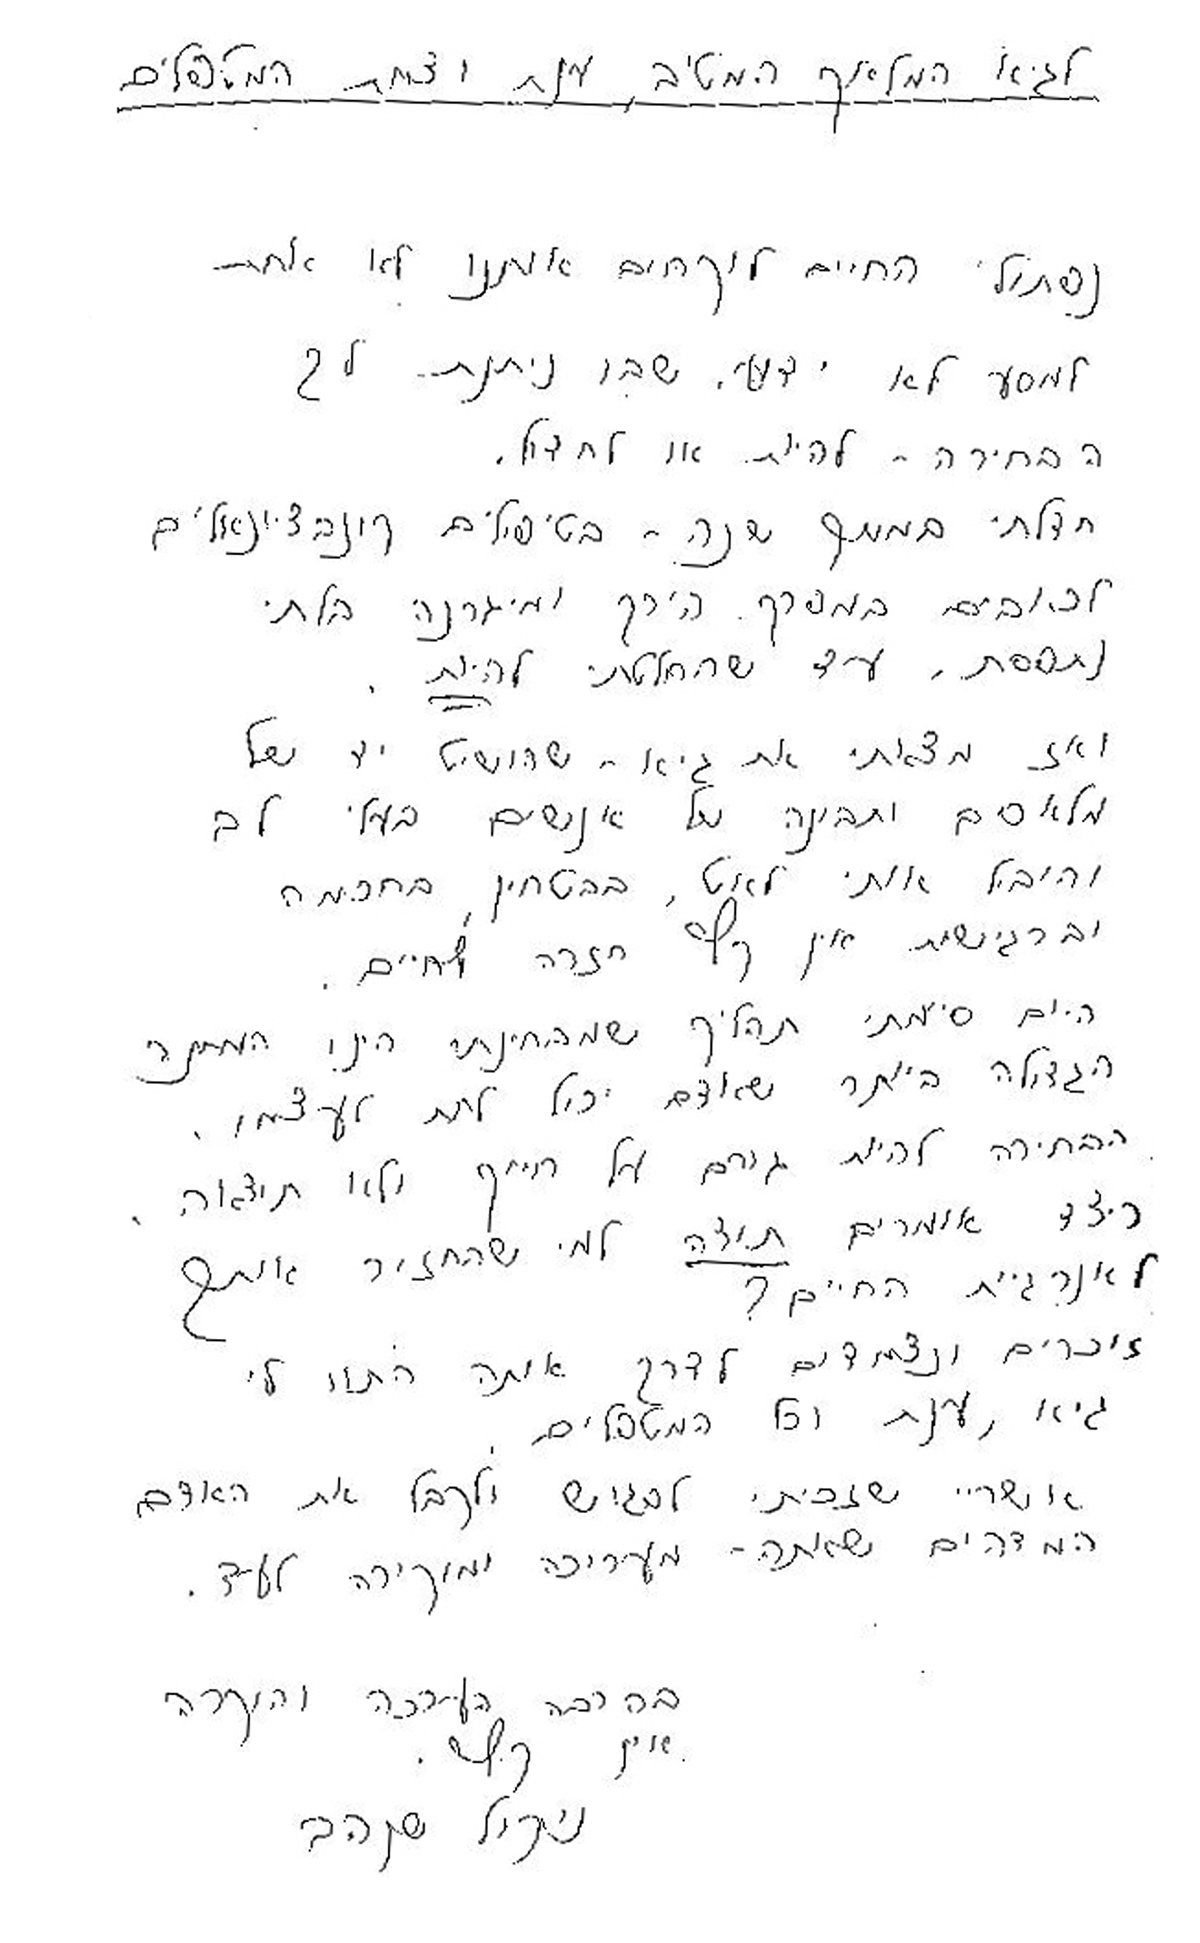 לגיא המלאך המטיב, ענת וצוות המטפלים
נפתולי החיים לוקחים אותנו לא אחת
למסע לא ידוע, שבו ניתנת לך
הבחירה - להיות או לחדול.
חדלתי במשך שנה - בטיפולים קונבציונאלים
לכאבים במפרק הירך ומיגרנה בלתי
נתפסת, עד שהחלטתי להיות.
ואז מצאתי את גיא - שהושיט יד של
מלאכים ותבונה של אנשים בעלי לב
והוביל אותי לאט, בבטחון, בחכמה
וברגישות אין קץ חזרה לחיים.
היום סיימתי תהליך שמבחינתי הינו המתנה
הגדולה ביותר שאדם יכול לתת לעצמו.
הבחירה להיות גורם על חייך ולא תוצאה.
כיצד אומרים תודה למי שהחזיר אותך
לאנרגיית החיים?
זוכרים ונצמדים לדרך אותה התוו לי
גיא, ענת וכל המטפלים.
אושריי שזכיתי לפגוש ולקבל את האדם
המדהים שאתה - מעריכה ומוקירה לעד.
בברכה הערכה והוקרה
אין קץ.
ניקול שנהב